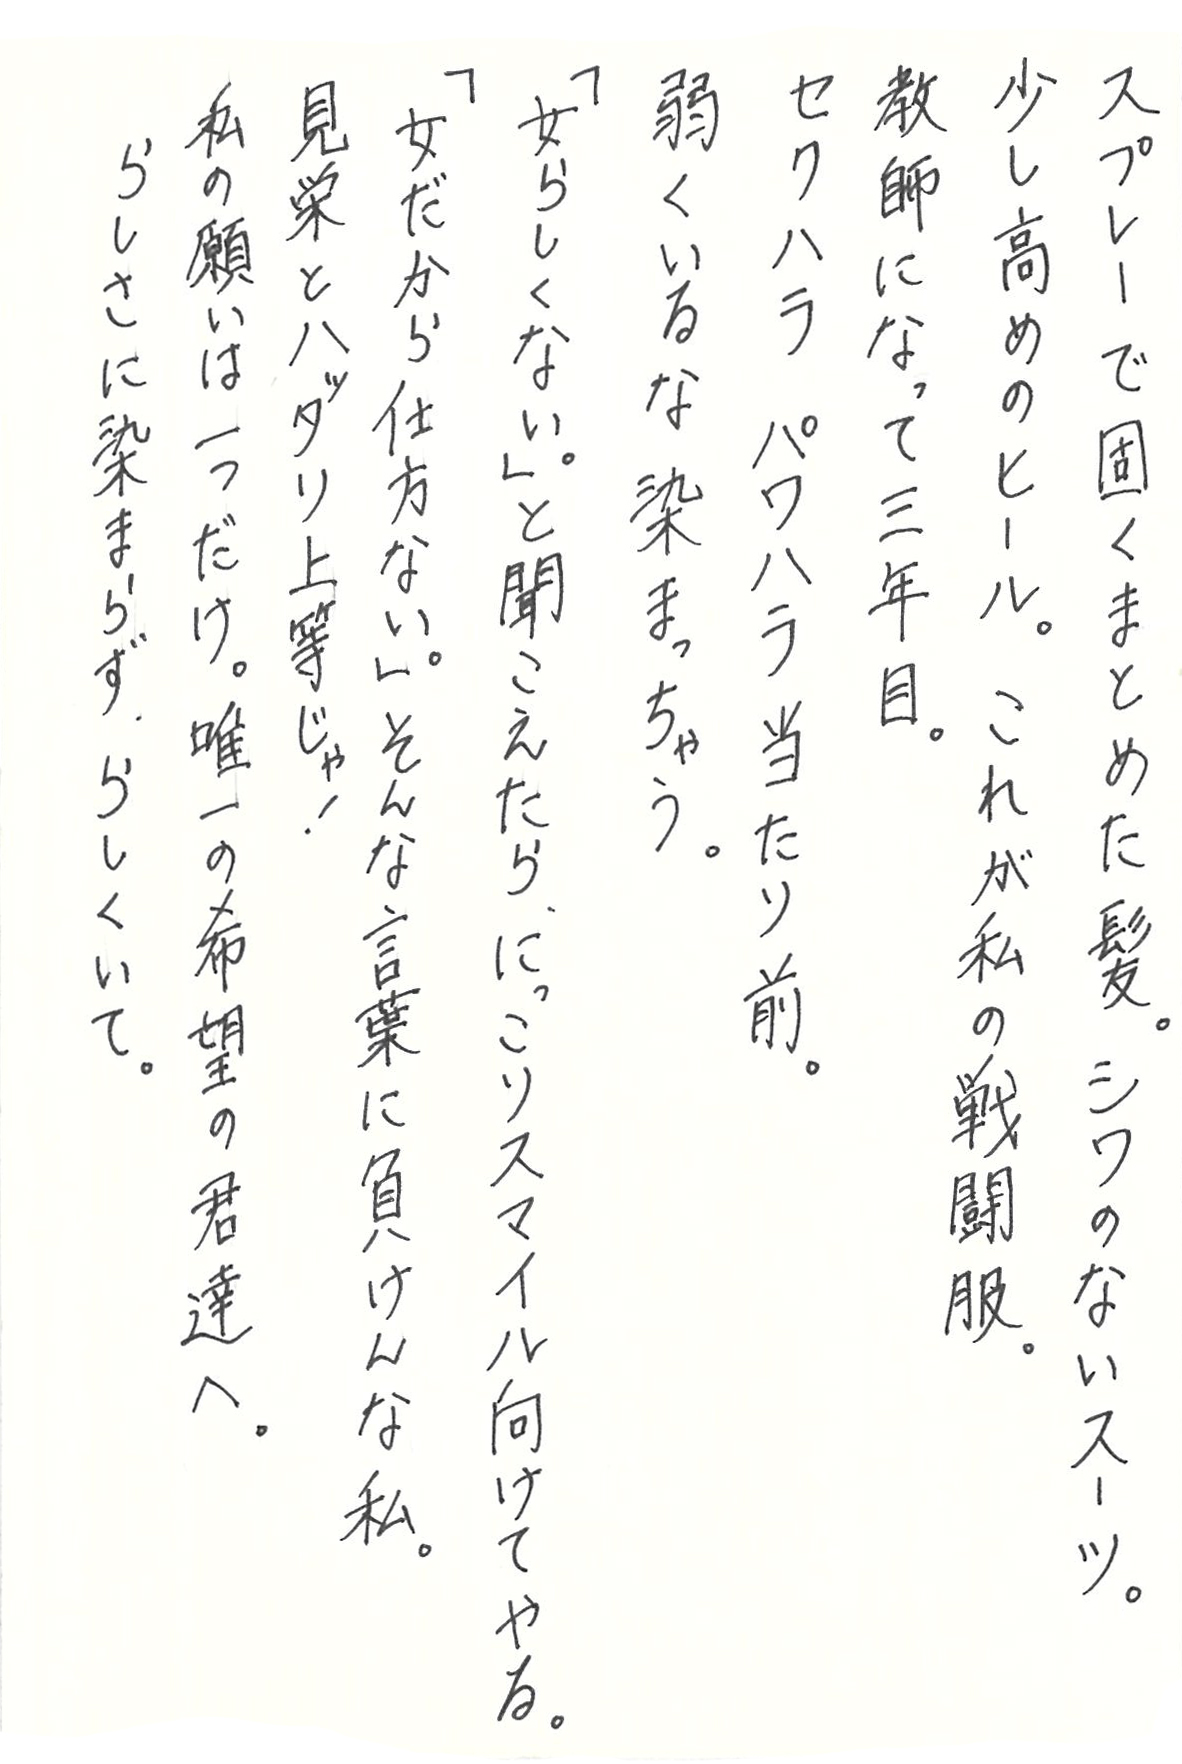 スプレーで固くまとめた髪。シワのないスーツ。
少し高めのヒール。これが私の戦闘服。
教師になって三年目。
セクハラ パワハラ当たり前。
弱くいるな 染まっちゃう。
「女らしくない。」と聞こえたら、にっこりスマイル向けてやる。
「女だから仕方ない。」そんな言葉に負けんな私。
見栄とハッダリ上等じゃ!
私の願いは一つだけ。唯一の希望の君達へ。
らしさに染まらず、らしくいて。